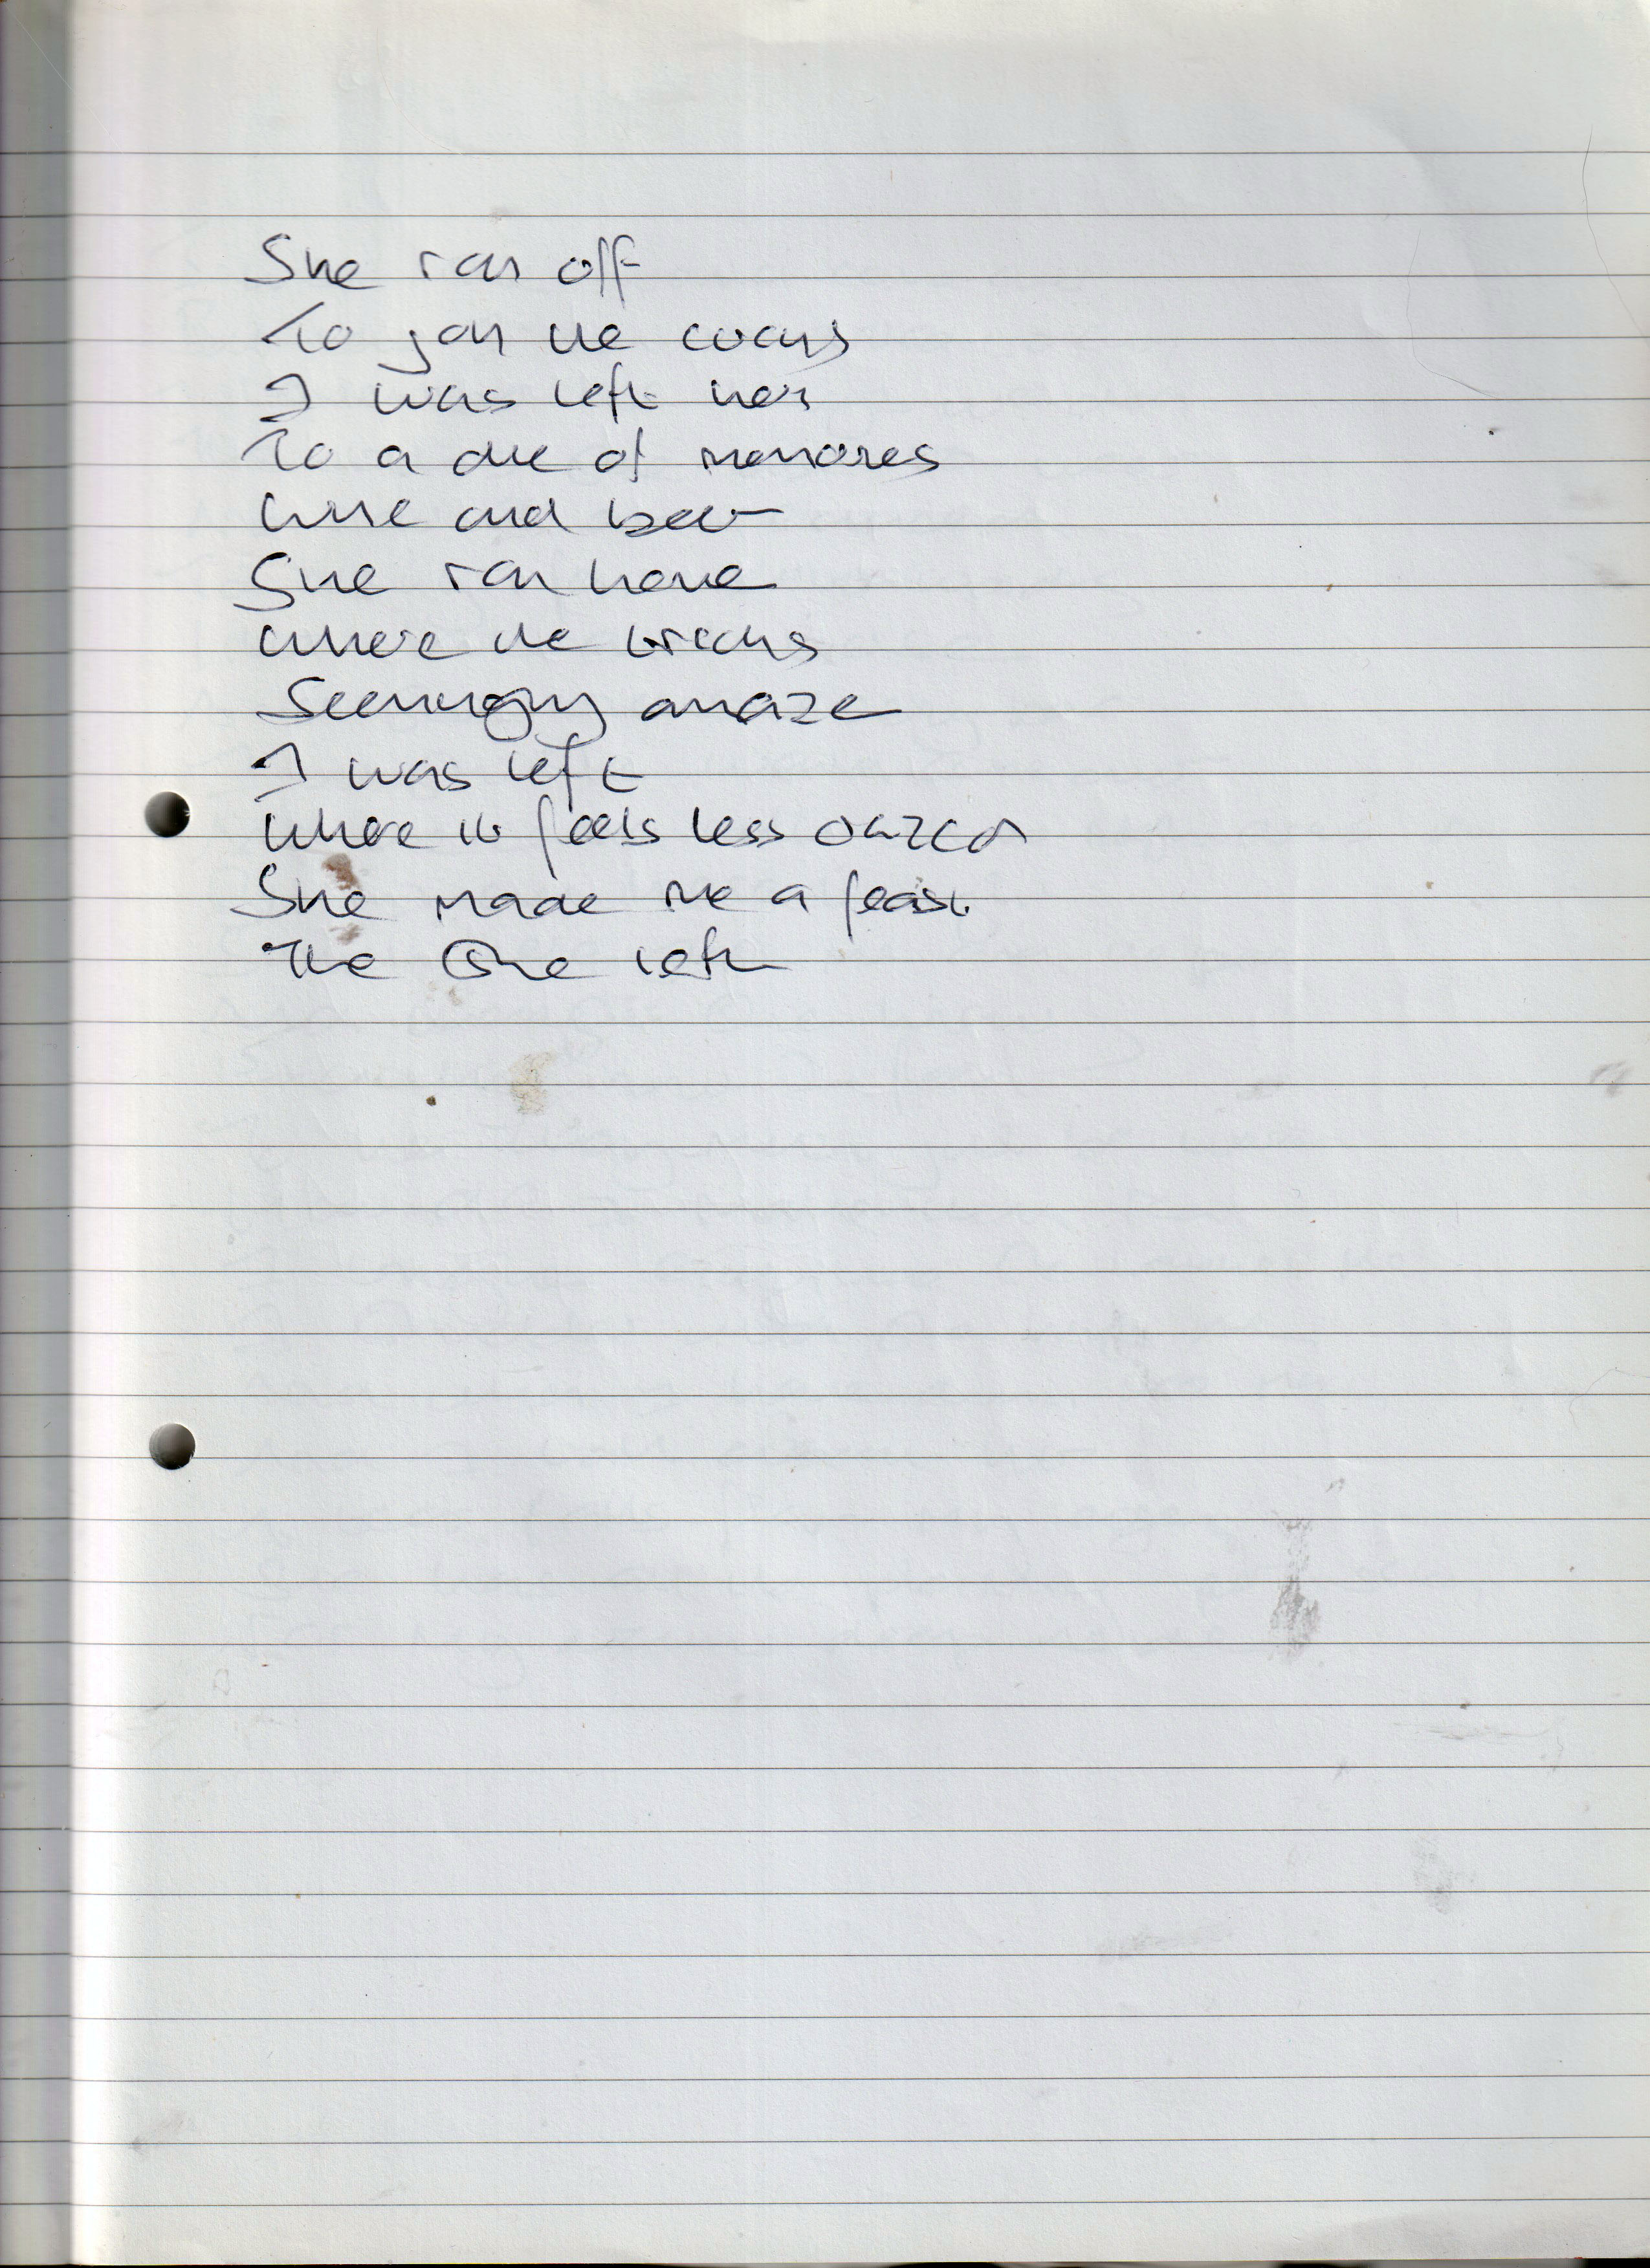 She ran off
To join the
I was left her
To a of memories
Wine and beer
She ran home
Where the bricks
Seemingly amaze
I was left
Where it feels less
She made me a feast
The One left